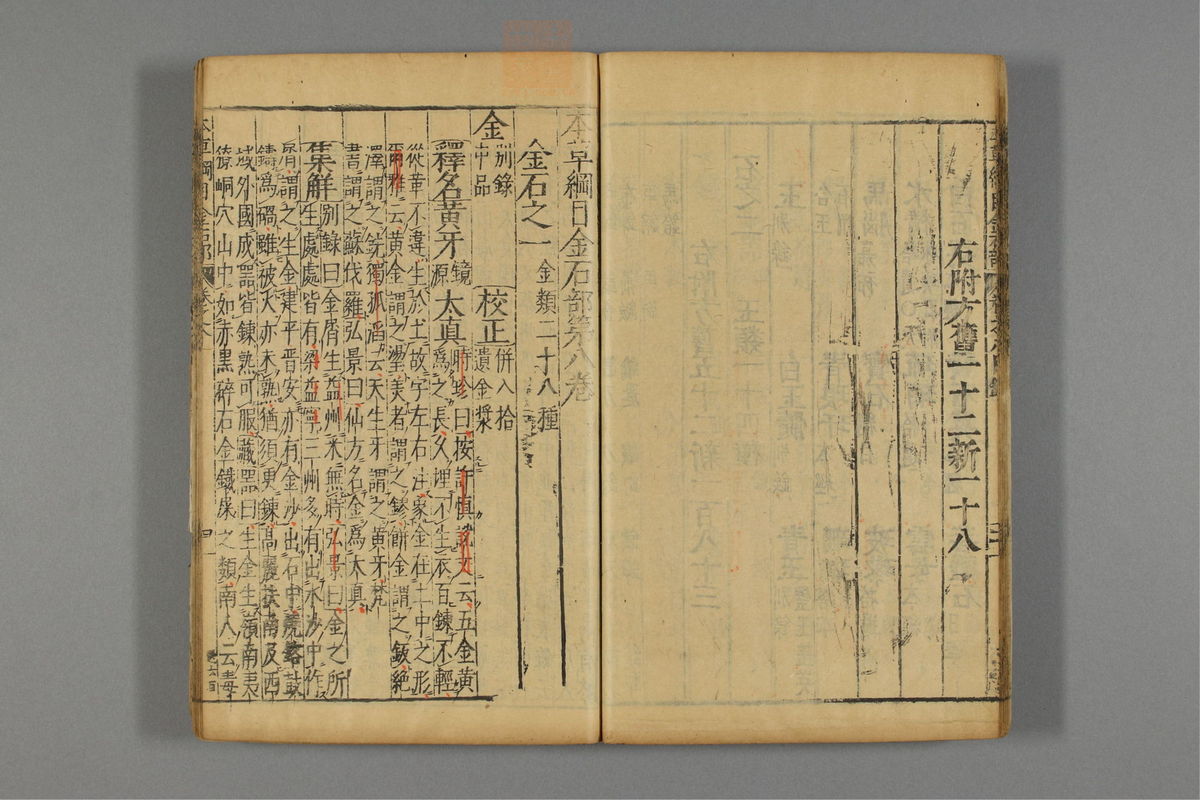 右附方舊一十二新一十八
本草綱目金石部第八卷
金石之一 金類二十八種
金 別錄中品 校正 併入拾遺金漿
釋名 黃牙 鏡源 太真 時珍曰按許慎說文云五金黃
為之長久埋不生衣百鍊不輕
從革不違生於土故字左右注象金在土中之形
爾雅云黃金謂之璗美者謂之鏐餅金謂之鈑絕
澤謂之銑獨孤滔云天生牙謂之黃牙梵
書謂之蘇伐羅弘景曰仙方名金為太真
集解 別錄曰金屑生益州采無時弘景曰金之所
生處處皆有梁益寧三州多有出水沙中作
屑謂之生金建平晉安亦有金沙出石中燒鎔鼓
鑄為碢雖被火亦未熟猶須更鍊高麗扶南及西
域外國成器皆鍊熟可服藏器曰生金生嶺南夷
獠峒穴山中如赤黑碎石金鐵屎之類南人云毒